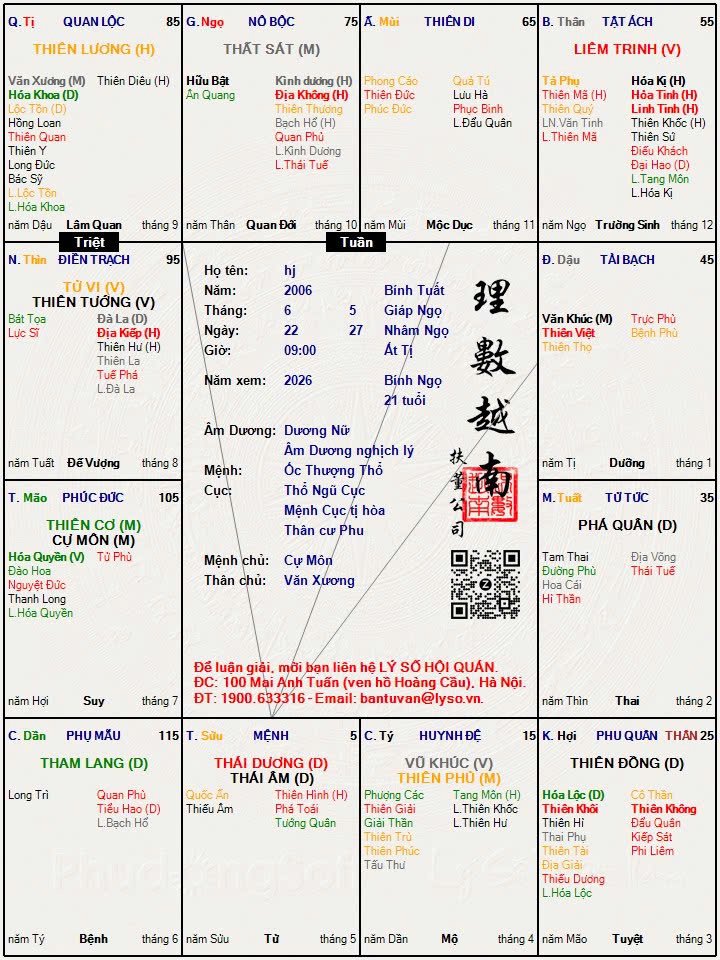 Q. Tị QUAN LỘC 85
THIÊN LƯƠNG (H)
Văn Xương (M) Thiên Diêu (H)
Hóa Khoa (D)
Lộc Tồn (D)
Hồng Loan
Thiên Quan
Thiên Y
Long Đức
Bác Sỹ
L.Lộc Tồn
L.Hóa Khoa
năm Dậu Lâm Quan tháng 9
G. Ngọ NÔ BỘC 75
THẤT SÁT (M)
Hữu Bật Kình dương (H)
Ân Quang Địa Không (H)
Thiên Thương
Bạch Hổ (H)
Quan Phủ
L.Kình Dương
L.Thái Tuế
năm Thân Quan Đới tháng 10
Ấ. Mùi THIÊN DI 65
Phong Cáo Quả Tú
Thiên Đức Lưu Hà
Phúc Đức Phục Binh
L.Đẩu Quân
năm Mùi Mộc Dục tháng 11
B. Thân TẬT ÁCH 55
LIÊM TRINH (V)
Tả Phụ Hóa Kị (H)
Thiên Mã (H) Hỏa Tinh (H)
Thiên Quý Linh Tinh (H)
LN.Văn Tinh Thiên Khốc (H)
L.Thiên Mã Thiên Sứ
Điếu Khách
Đại Hao (D)
L.Tang Môn
L.Hóa Kị
năm Ngọ Trường Sinh tháng 12
Triệt
Tuần
N. Thìn ĐIỀN TRẠCH 95
TỬ VI (V)
THIÊN TƯỚNG (V)
Bát Tọa Đà La (D)
Lực Sĩ Địa Kiếp (H)
Thiên Hư (H)
Thiên La
Tuế Phá
L.Đà La
năm Tuất Đế Vượng tháng 8
Họ tên: hj
Năm: 2006 Bính Tuất
Tháng: 6 5 Giáp Ngọ
Ngày: 22 27 Nhâm Ngọ
Giờ: 09:00 Ất Tị
Năm xem: 2026 Bính Ngọ
21 tuổi
Âm Dương: Dương Nữ
Âm Dương nghịch lý
Mệnh: Ốc Thượng Thổ
Cục: Thổ Ngũ Cục
Mệnh Cục tị hòa
Thân cư Phu
Mệnh chủ: Cự Môn
Thân chủ: Văn Xương
理數越南
扶董公司
Z
Để luận giải, mời bạn liên hệ LÝ SỐ HỘI QUÁN.
ĐC: 100 Mai Anh Tuấn (ven hồ Hoàng Cầu), Hà Nội.
ĐT: 1900.633316 - Email: bantuvan@lyso.vn.
Đ. Dậu TÀI BẠCH 45
Văn Khúc (M) Trực Phù
Thiên Việt Bệnh Phù
Thiên Thọ
năm Tị Dưỡng tháng 1
T. Mão PHÚC ĐỨC 105
THIÊN CƠ (M)
CỰ MÔN (M)
Hóa Quyền (V) Tử Phù
Đào Hoa
Nguyệt Đức
Thanh Long
L.Hóa Quyền
năm Hợi Suy tháng 7
M. Tuất TỬ TỨC 35
PHÁ QUÂN (D)
Tam Thai Địa Võng
Đường Phù Thái Tuế
Hoa Cái
Hỉ Thần
năm Thìn Thai tháng 2
C. Dần PHỤ MẪU 115
THAM LANG (D)
Long Trì Quan Phù
Tiểu Hao (D)
L.Bạch Hổ
năm Tý Bệnh tháng 6
T. Sửu MỆNH 5
THÁI DƯƠNG (D)
THÁI ÂM (D)
Quốc Ấn Thiên Hình (H)
Thiếu Âm Phá Toái
Tướng Quân
năm Sửu Tử tháng 5
C. Tý HUYNH ĐỆ 15
VŨ KHÚC (V)
THIÊN PHỦ (M)
Phượng Các Tang Môn (H)
Thiên Giải L.Thiên Khốc
Giải Thần L.Thiên Hư
Thiên Trù
Thiên Phúc
Tấu Thư
năm Dần Mộ tháng 4
K. Hợi PHU QUÂN THÂN 25
THIÊN ĐỒNG (D)
Hóa Lộc (D) Cô Thần
Thiên Khôi Thiên Không
Thiên Hỉ Đẩu Quân
Thai Phụ Kiếp Sát
Thiên Tài Phi Liêm
Địa Giải
Thiếu Dương
L.Hóa Lộc
năm Mão Tuyệt tháng 3